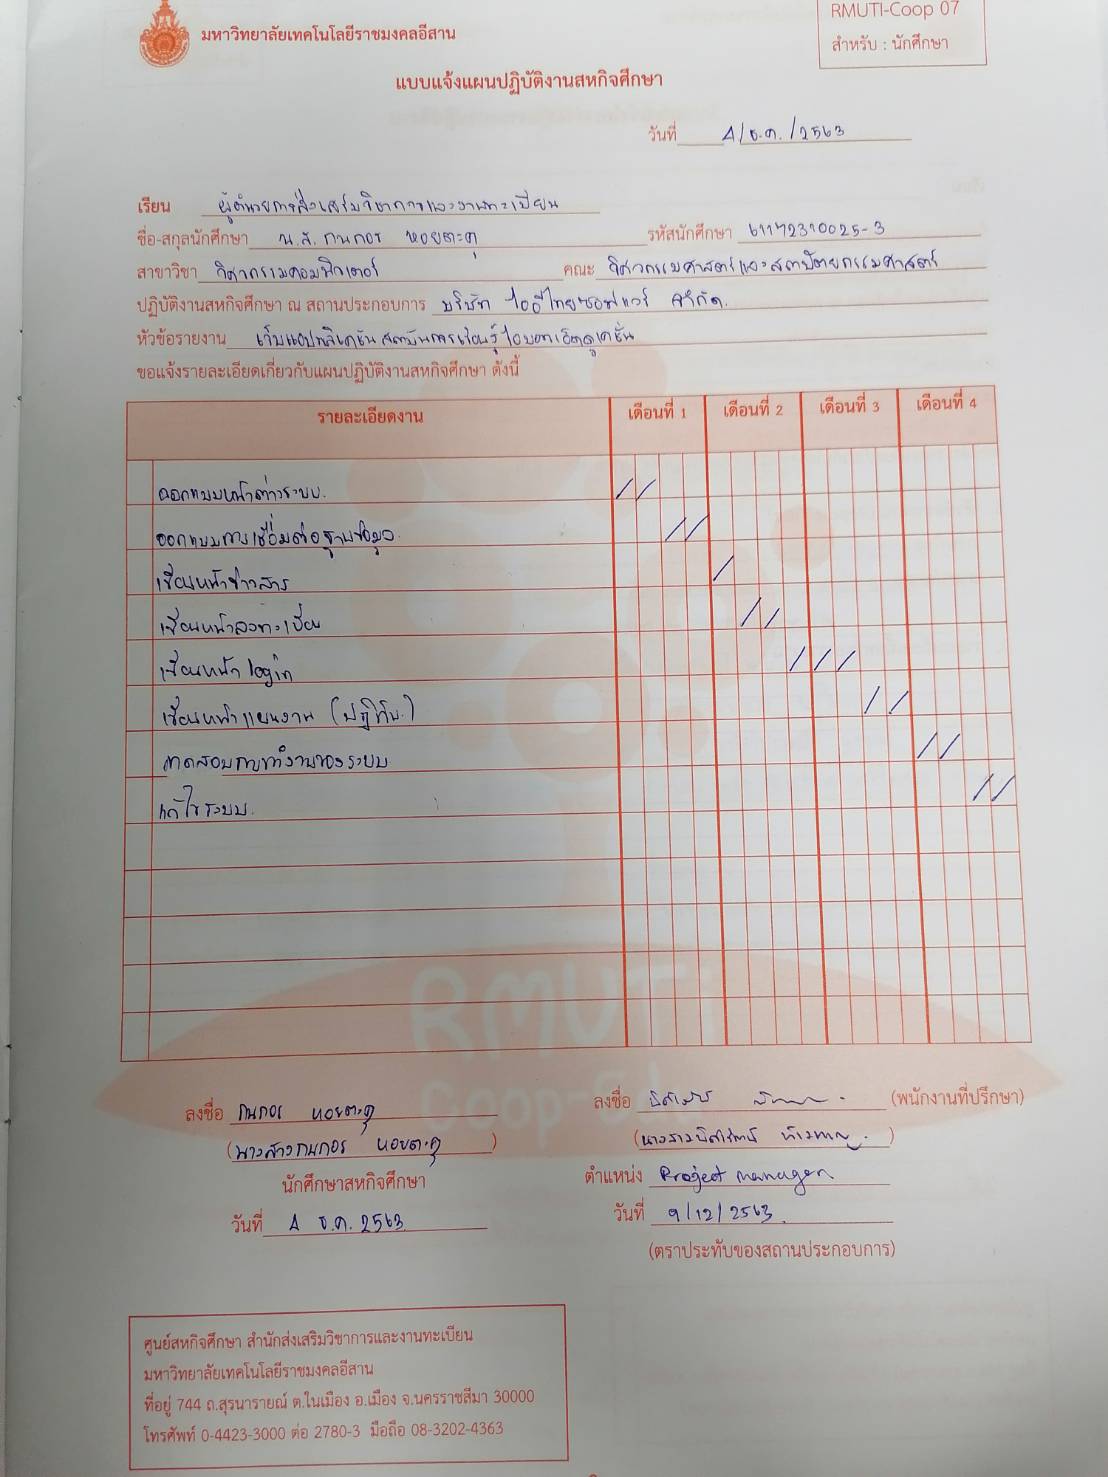 มหาวิทยาลัยเทคโนโลยีราชมงคลอีสาน
RMUTI-Coop 07
สำหรับ : นักศึกษา
แบบแจ้งแผนปฏิบัติงานสหกิจศึกษา
วันที่ 4/ธ.ค./2563
เรียน ผู้อำนวยการส่งเสริมวิชาการและงานทะเบียน
ชื่อ-สกุลนักศึกษา น.ส. กนกอร หอยตะคุ รหัสนักศึกษา 61172310025-3
สาขาวิชา วิศวกรรมคอมพิวเตอร์ คณะ วิศวกรรมศาสตร์และสถาปัตยกรรมศาสตร์
ปฏิบัติงานสหกิจศึกษา ณ สถานประกอบการ บริษัท ไออีไทยซอฟแวร์ จำกัด.
หัวข้อรายงาน เว็บแอปพลิเคชัน สถาบันการเรียนรู้
ขอแจ้งรายละเอียดเกี่ยวกับแผนปฏิบัติงานสหกิจศึกษา ดังนี้
รายละเอียดงาน เดือนที่ 1 เดือนที่ 2 เดือนที่ 3 เดือนที่ 4
ออกแบบหน้าต่างระบบ. / /
ออกแบบการเชื่อมต่อฐานข้อมูล. / /
เขียนหน้าข่าวสาร /
เขียนหน้าลงทะเบียน / /
เขียนหน้า login / / /
เขียนหน้าแผนงาน (ปฏิทิน.) / /
ทดสอบการทำงานของระบบ / /
แก้ไขระบบ. / /
RMUTI
Coop-
ลงชื่อ กนกอร หอยตะคุ
ลงชื่อ (พนักงานที่ปรึกษา)
(นางสาวกนกอร หอยตะคุ)
(นางสาว )
นักศึกษาสหกิจศึกษา
ตำแหน่ง Project manager
วันที่ 4 ธ.ค. 2563
วันที่ 9/12/2563.
(ตราประทับของสถานประกอบการ)
ศูนย์สหกิจศึกษา สำนักส่งเสริมวิชาการและงานทะเบียน
มหาวิทยาลัยเทคโนโลยีราชมงคลอีสาน
ที่อยู่ 744 ถ.สุรนารายณ์ ต.ในเมือง อ.เมือง จ.นครราชสีมา 30000
โทรศัพท์ 0-4423-3000 ต่อ 2780-3 มือถือ 08-3202-4363